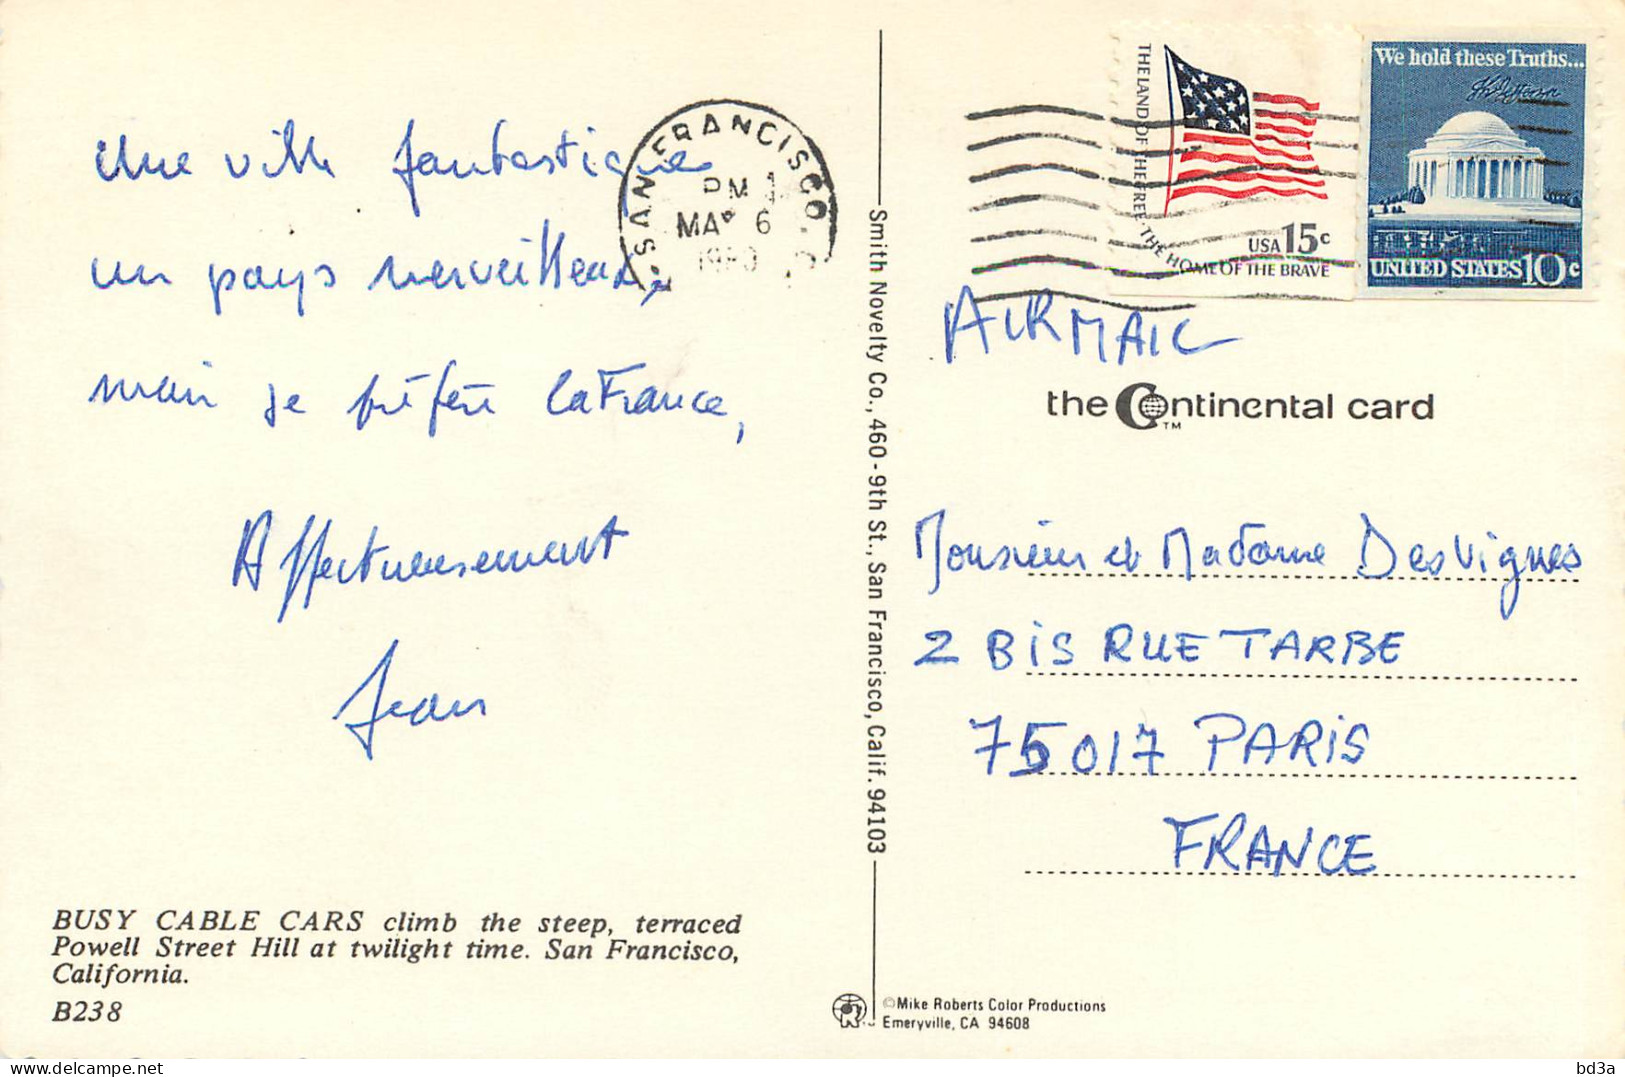 Une ville fantastique
un pays merveilleux,
mais je préfère la France,
Affectueusement
Jean
BUSY CABLE CARS climb the steep, terraced
Powell Street Hill at twilight time. San Francisco,
California.
B238
SAN FRANCISCO
PM
6
Smith Novelty Co., 460-9th St., San Francisco, Calif. 94103
©Mike Roberts Color Productions
Emeryville, CA 94608
THE LAND OF THE FREE·THE HOME OF THE BRAVE
USA 15c
We hold these Truths...
Th Jefferson
UNITED STATES 10c
AIRMAIL
the Continental card
TM
Monsieur et Madame DesVignes
2 BIS RUE TARBE
75017 PARIS
FRANCE
bd3a